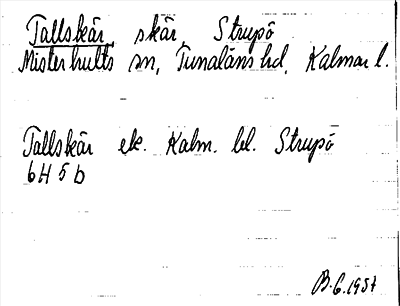 Tallskär, skär, Strupö
Misterhults sn, Tunaläns hd, Kalmar l.
Tallskär ek. Kalm. bl. Strupö
6 H 5 b
B. G. 1957